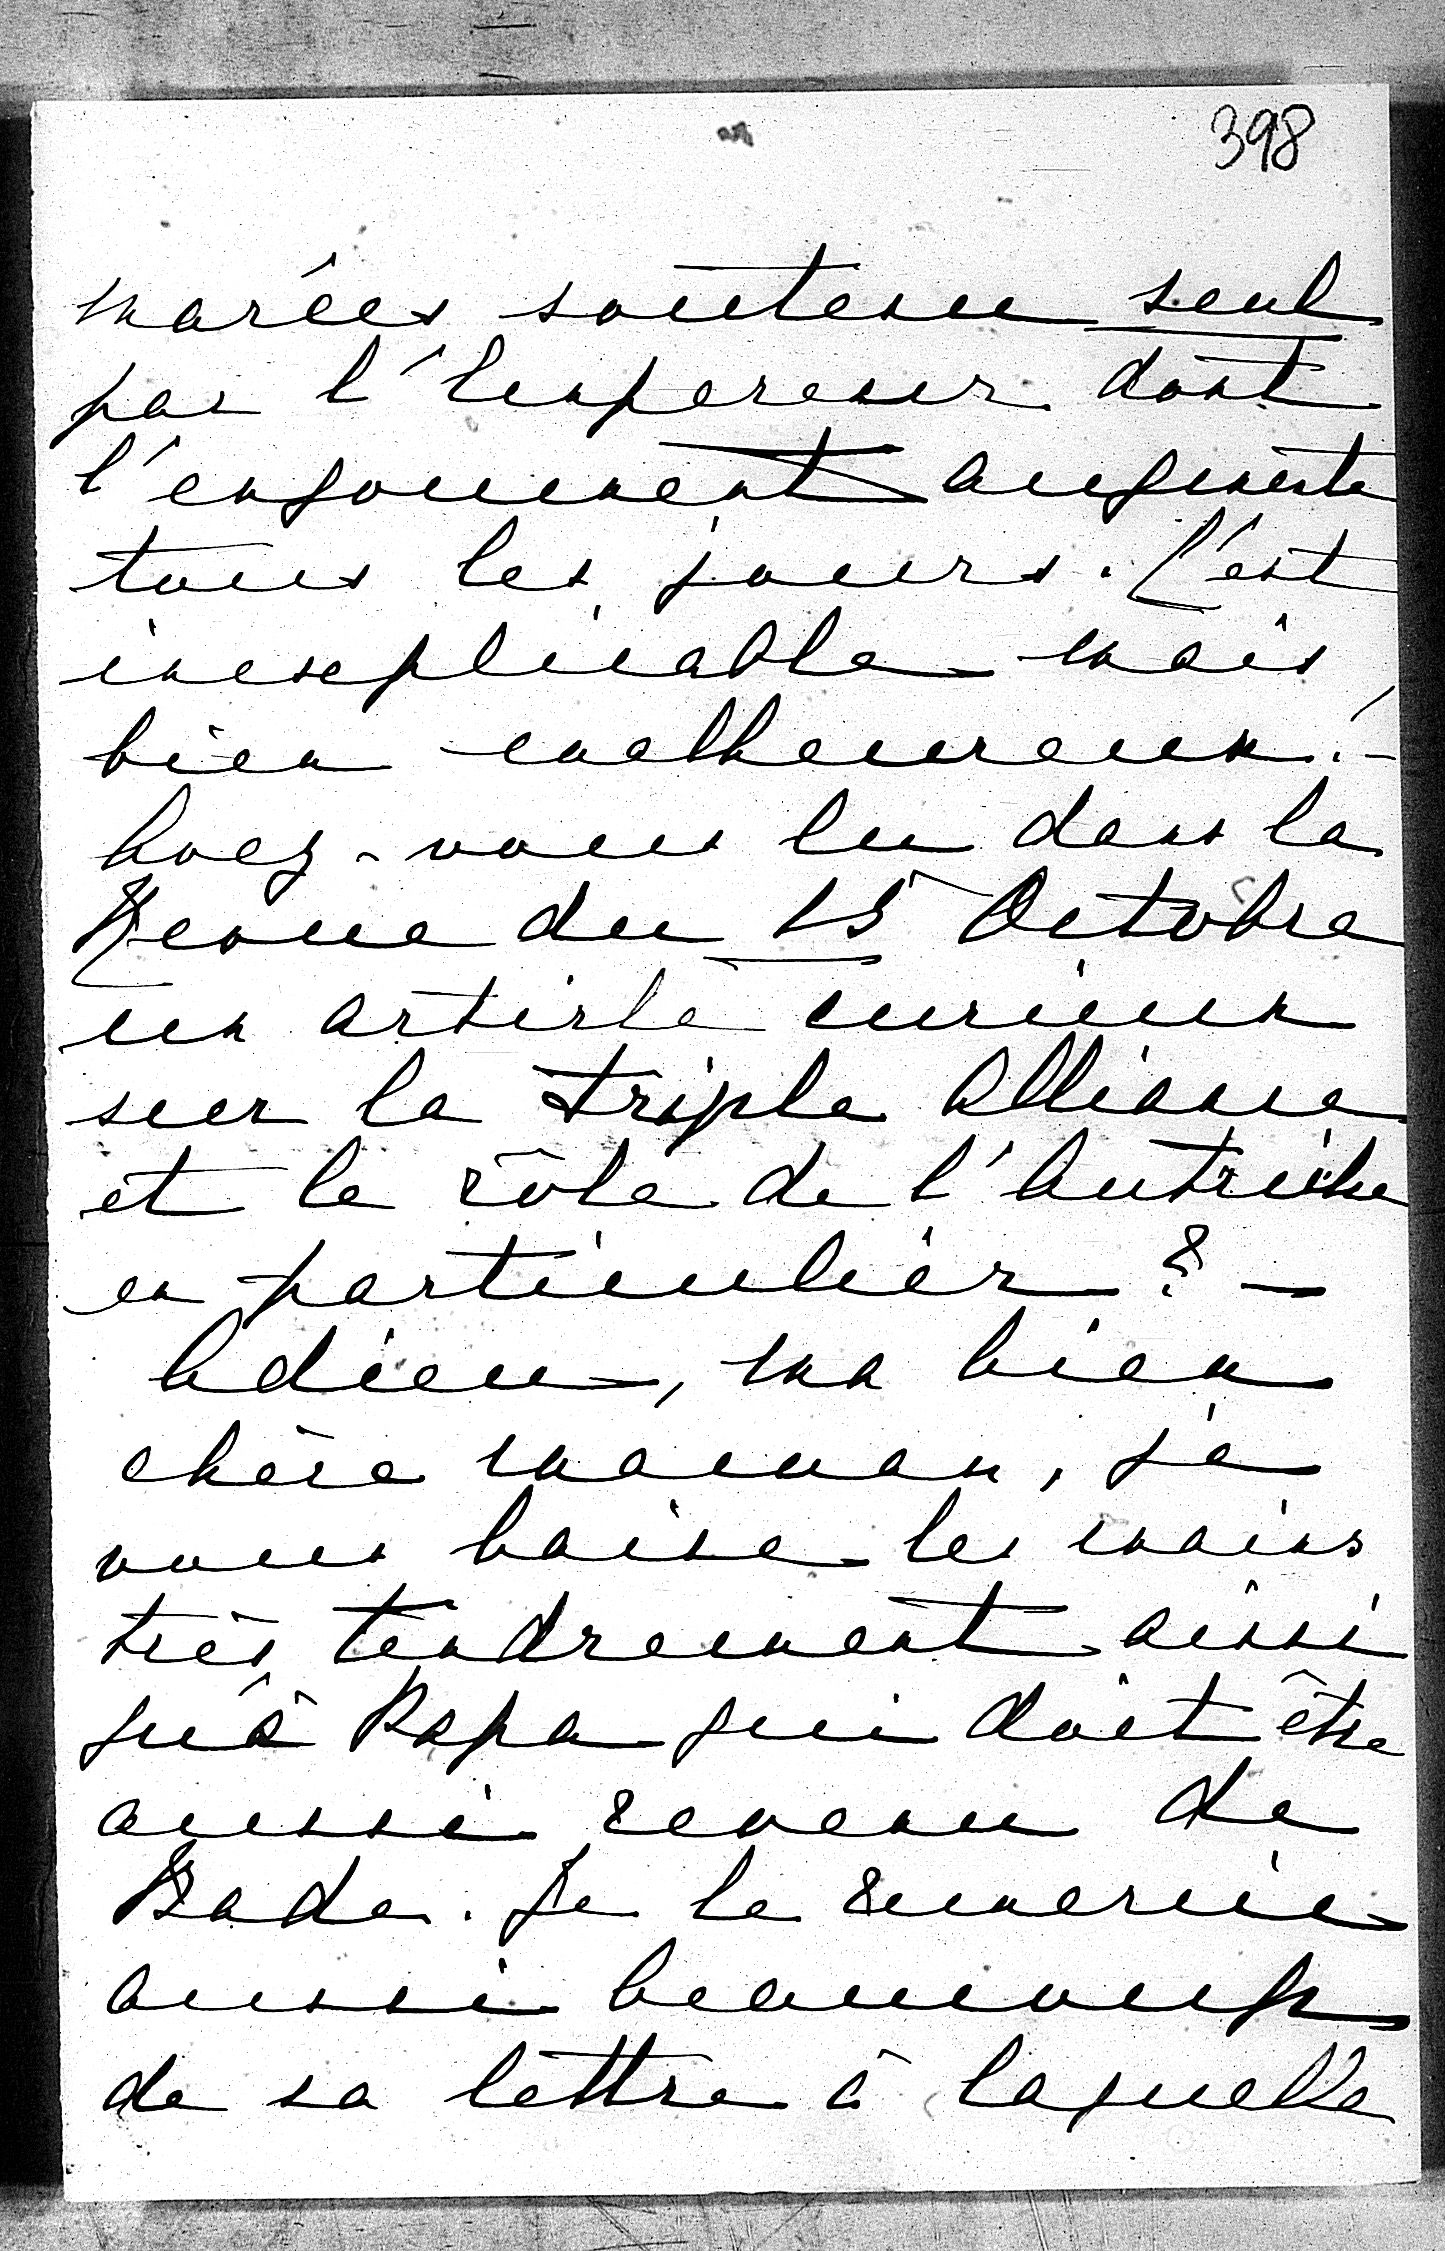 398
marées soutenu seul
par l'Empereur dont
l'engouement augmente
tous les jours. C'est
inexplicable mais
bien malheureux! -
Avez-vous lu dans la
Revue du 15 Octobre
un article curieux
sur la triple Alliance
et le rôle de l'Autriche
en particulier? -
Adieu, ma bien
chère maman, je
vous baise les mains
très tendrement ainsi
qu'à Papa qui doit être
aussi revenu de
Bade. Je le remercie
aussi beaucoup
de sa lettre à laquelle